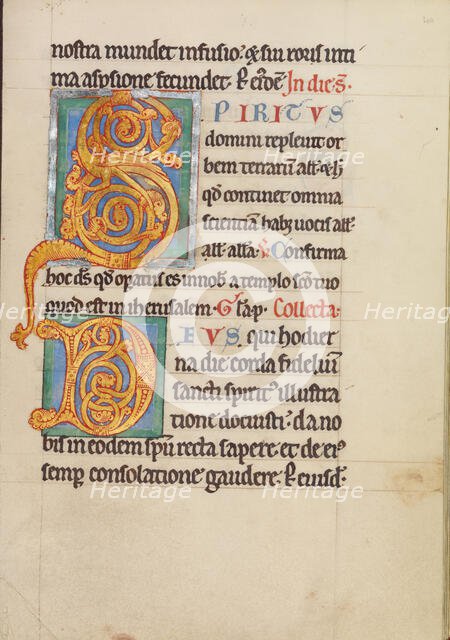 nostra mundet infusio. & sui roris inti
ma aspsione fecundet. ꝶ eūdē. In die. S.
SPIRITVS
domini repleuit or
bem terrarū all'. & h
qđ continet omnia
scientiam habz uocis all'.
all'. alla. V Confirma
hoc đs qđ opatus es innob. a templo sc̄o tuo
quod est in iherusalem. G sap. Collecta.
DEVS. qui hodier
na die corda fidelium
sancti spiritus illustra
tione docuisti. da no
bis in eodem spū recta sapere. et de ei'
semp consolatione gaudere. ꝶ eiusđ.
Heritage Heritage Heritage
Heritage Heritage Heritage
Heritage Heritage Heritage